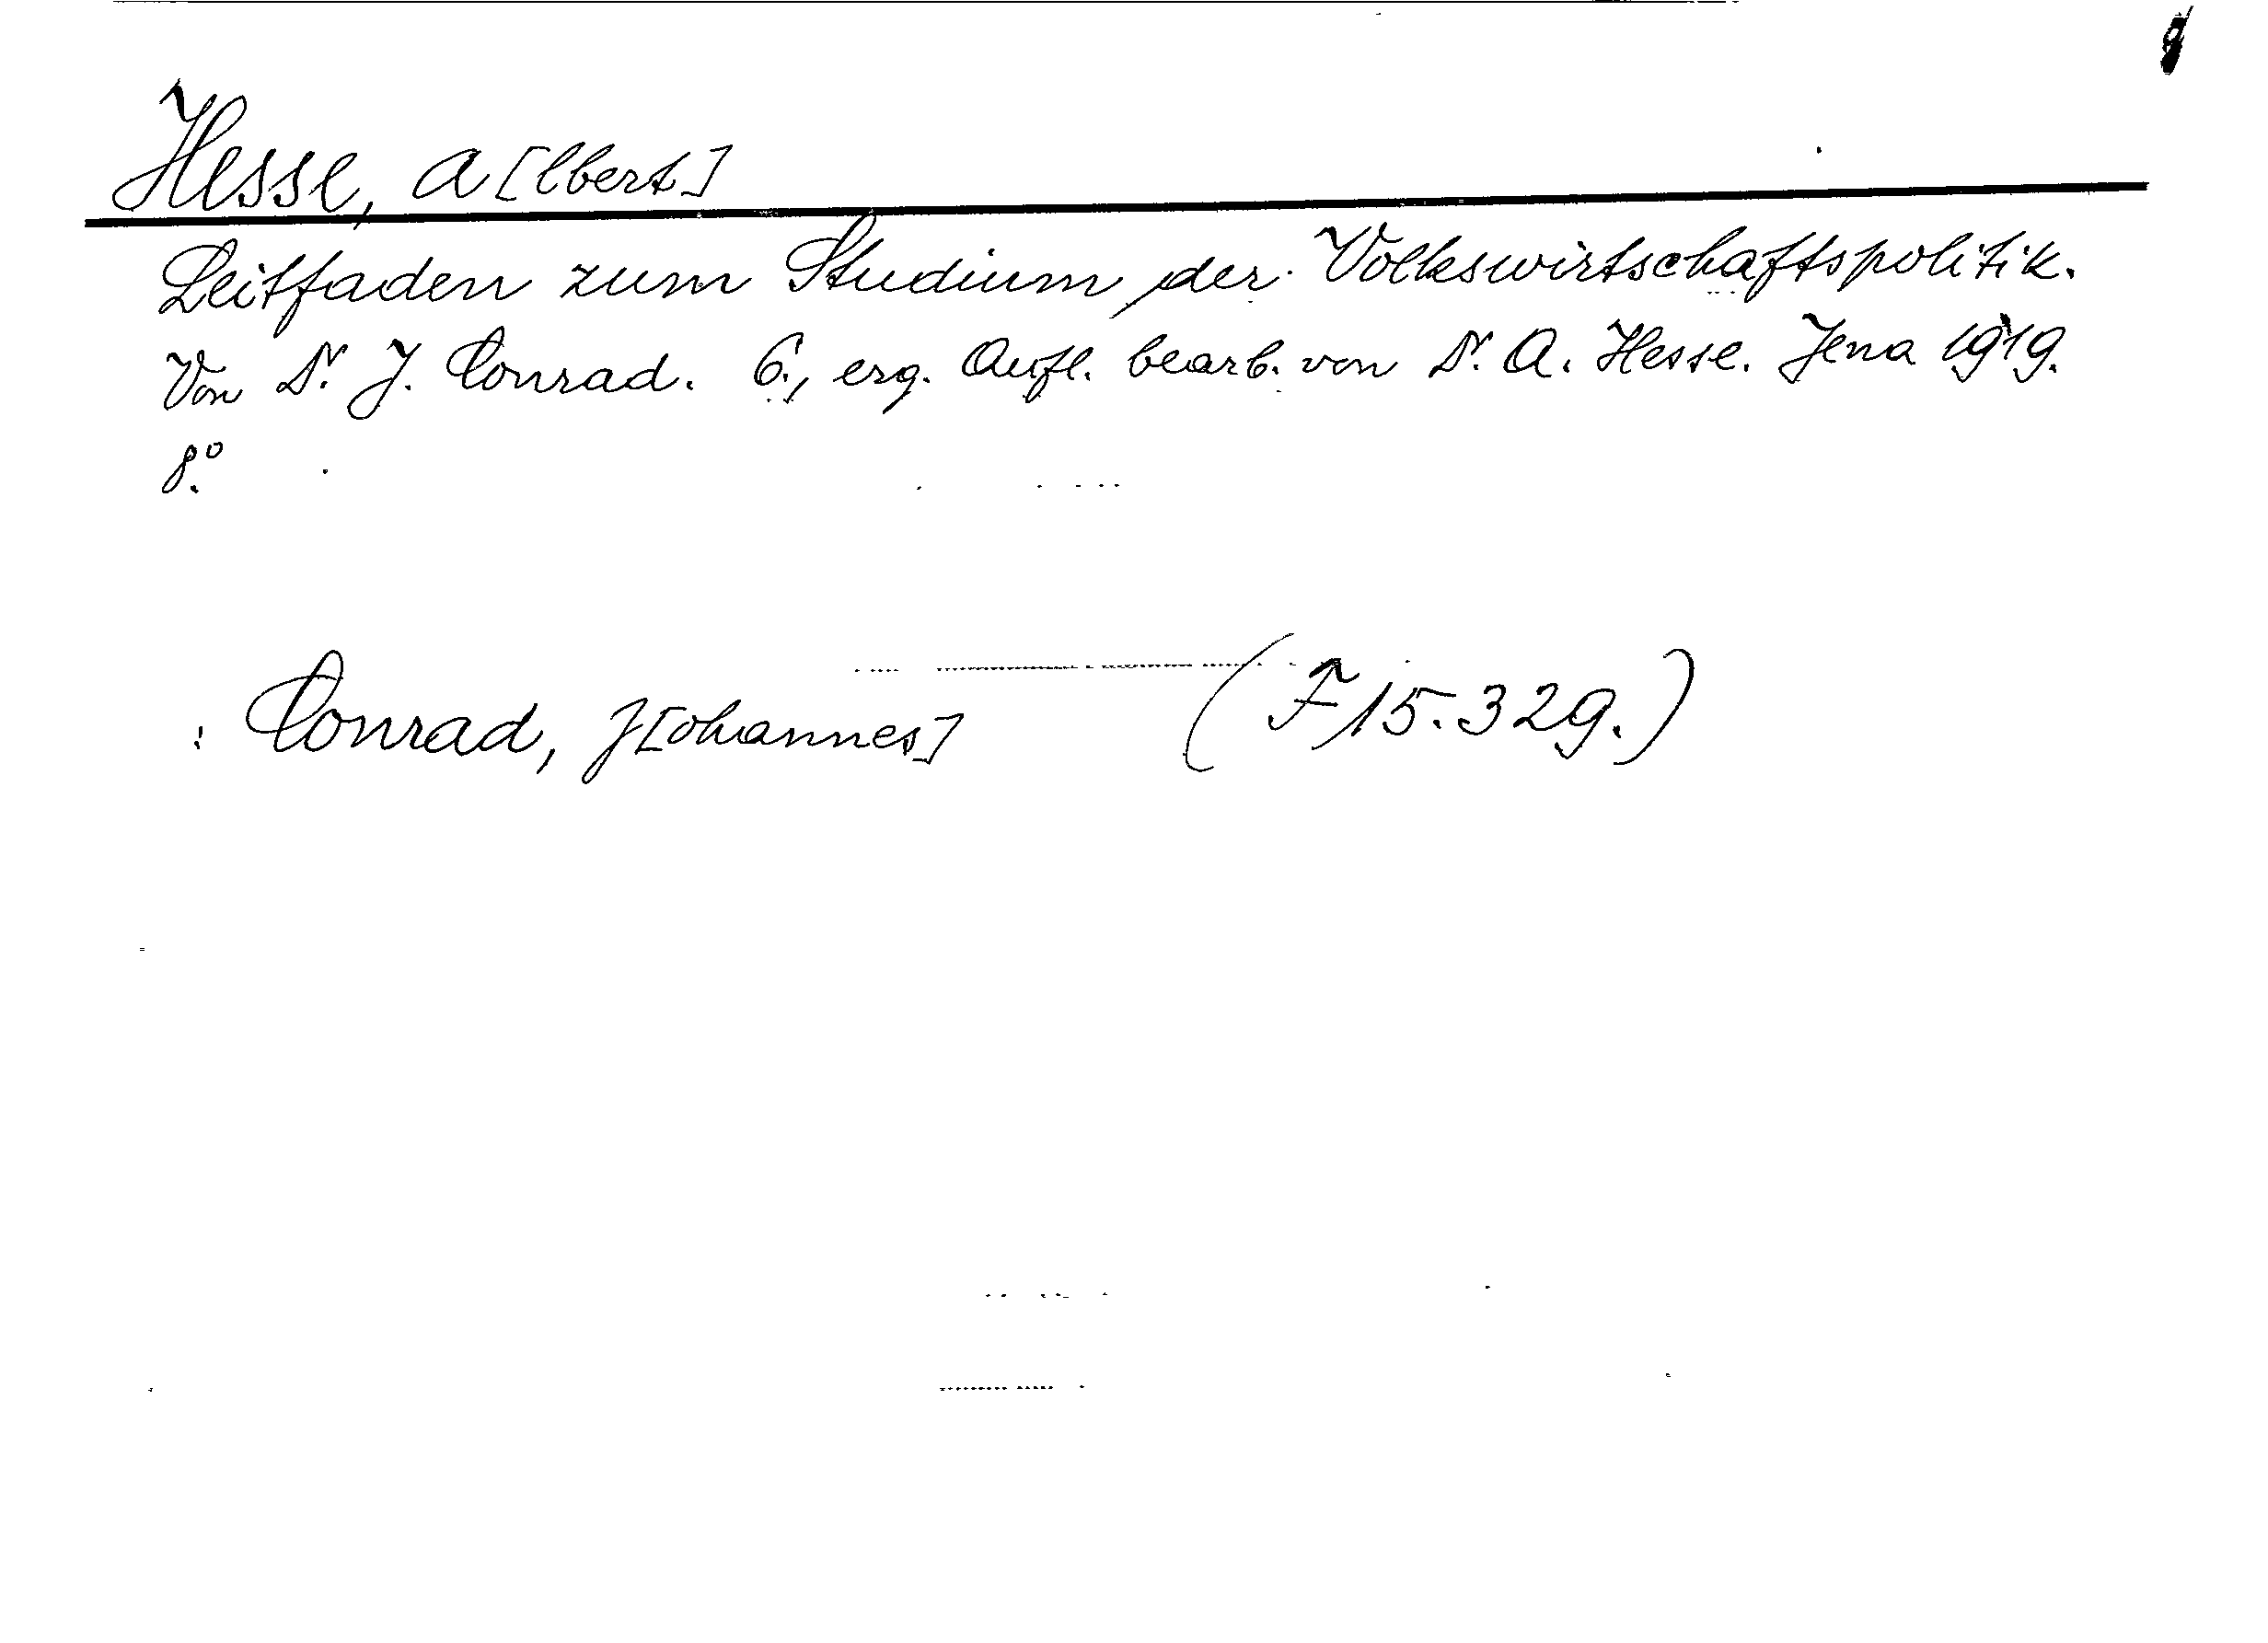 Hesse, A[lbert]
Leitfaden zum Studium der Volkswirtschaftspolitik.
Von Dr. J. Conrad. 6., erg. Aufl. bearb. von Dr. A. Hesse. Jena 1919.
8.°
: Conrad, J[ohannes] (F 15.329.)